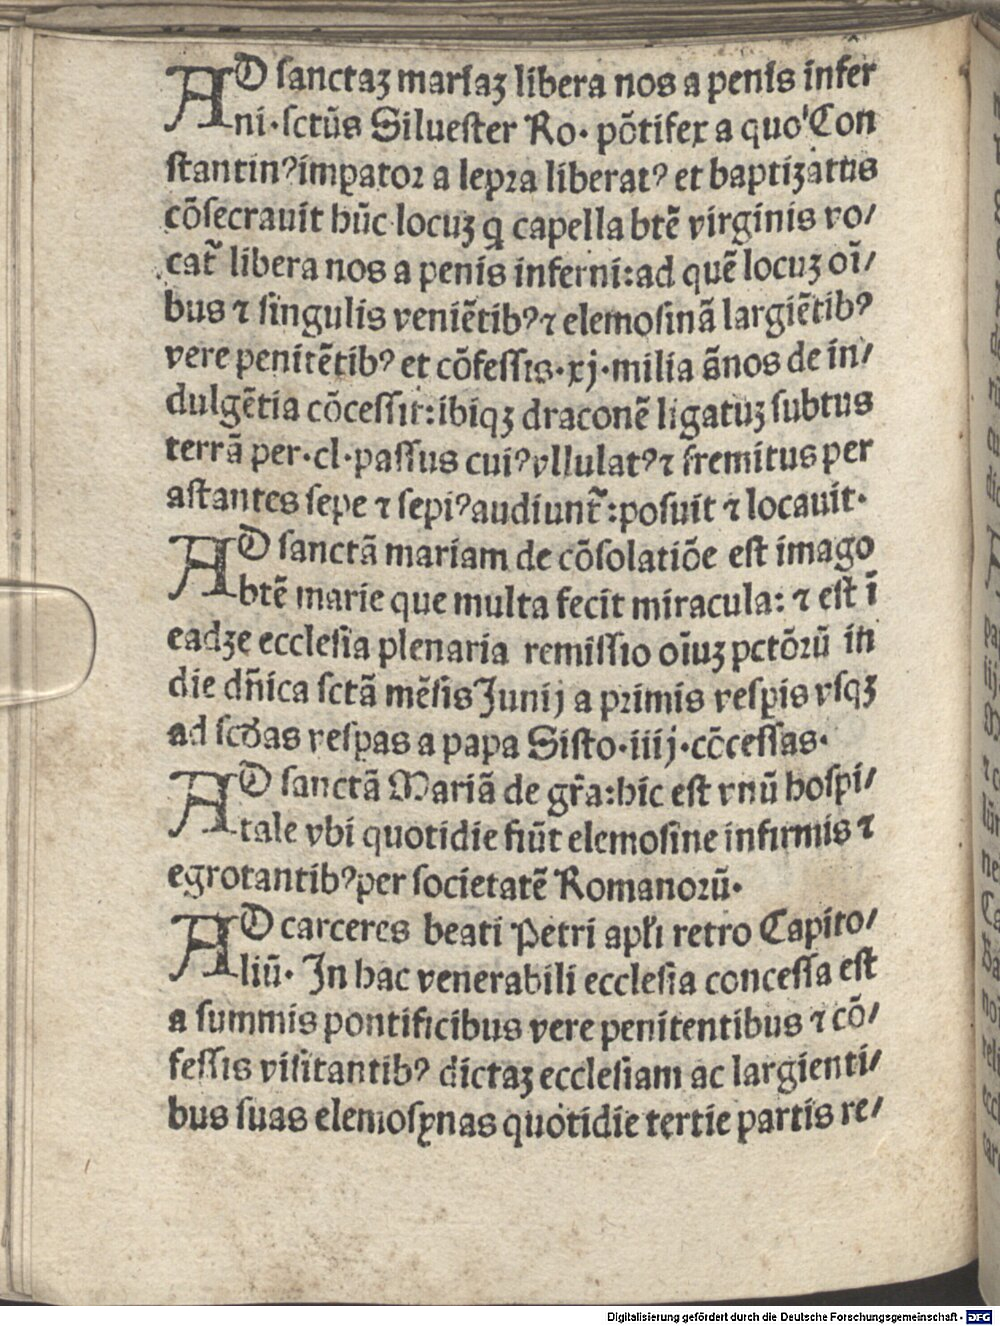 AD sanctaꝫ mariaꝫ libera nos a penis infer
ni·sctūs Siluester Ro· pōtifex a quo Con
stantinꝰ impator a lepra liberatꝰ et baptizatus
cōsecrauit hūc locuꝫ q capella btē virginis vo/
cat̃ libera nos a penis inferni:ad quē locuꝫ oī/
bus ⁊ singulis veniētibꝰ ⁊ elemosinā largiētibꝰ
vere penitētibꝰ et cōfessis·xj·milia ānos de in/
dulgētia cōcessit:ibiqꝫ draconē ligatuꝫ subtus
terrā per·cl·passus cuiꝰ vllulatꝰ ⁊ fremitus per
astantes sepe ⁊ sepiꝰ audiunt̃:posuit ⁊ locauit·
AD sanctā mariam de cōsolatiōe est imago
btē marie que multa fecit miracula: ⁊ est ī
eadꝫe ecclesia plenaria remissio oīuꝫ pctōrū in
die dn̄ica sctā mēsis Junij a primis vesꝑis vsqꝫ
ad scd̄as vesꝑas a papa Sisto·iiij·cōcessas·
AD sanctā Mariā de gr̃a:hic est vnū hospi/
tale vbi quotidie fiūt elemosine infirmis ⁊
egrotantibꝰ per societatē Romanorū·
AD carceres beati Petri apl̃i retro Capito/
liū· In hac venerabili ecclesia concessa est
a summis pontificibus vere penitentibus ⁊ cō/
fessis visitantibꝰ dictaꝫ ecclesiam ac largienti/
bus suas elemosynas quotidie tertie partis re/
Digitalisierung gefördert durch die Deutsche Forschungsgemeinschaft - DFG